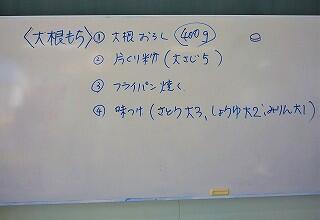 〈大根もち〉① 大根おろし 400g
② 片くり粉(大さじ5)
③ フライパン焼く
④ 味つけ(さとう大3、しょうゆ大2、みりん大1)